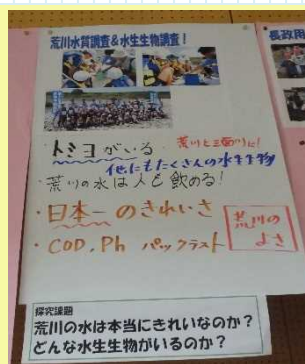 荒川水質調査&水生生物調査!
・トミヨがいる
荒川と三面川に!
他にもたくさんの水生生物
・荒川の水は人も飲める!
・日本一のきれいさ
・COD,Ph パックテスト
荒川の
よさ
探究課題
荒川の水は本当にきれいなのか?
どんな水生生物がいるのか?
長政用